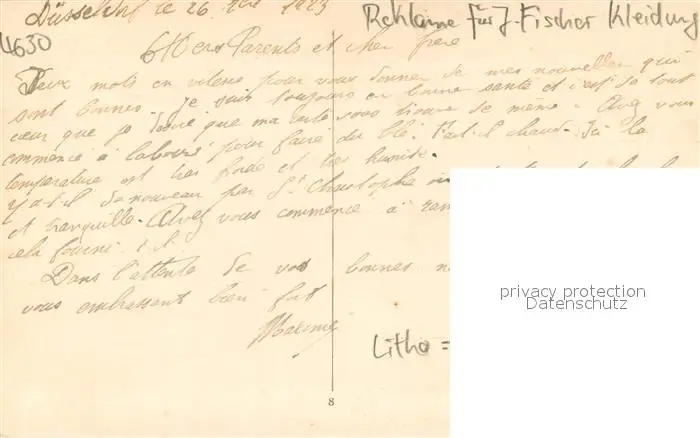 Düsseldorf le 26 1923
Reklame für J. Fischer Kleidung
4630
Chers Parents et cher frère
Deux mots en vitesse pour vous donner de mes nouvelles qui
sont bonnes, je suis toujours en bonne santé et c'est de tout
cœur que je désire que ma carte vous trouve de même. Avez vous
commencé à labourer pour faire du blé. Fait-il chaud. Ici la
température est très froide et très humide.
y a t-il du nouveau par St Christophe
et tranquille. Avez vous commencé à
cela fourni
Dans l'attente de vos bonnes
vous embrassent bien fort
Maxime
Litho =
8
privacy protection
Datenschutz